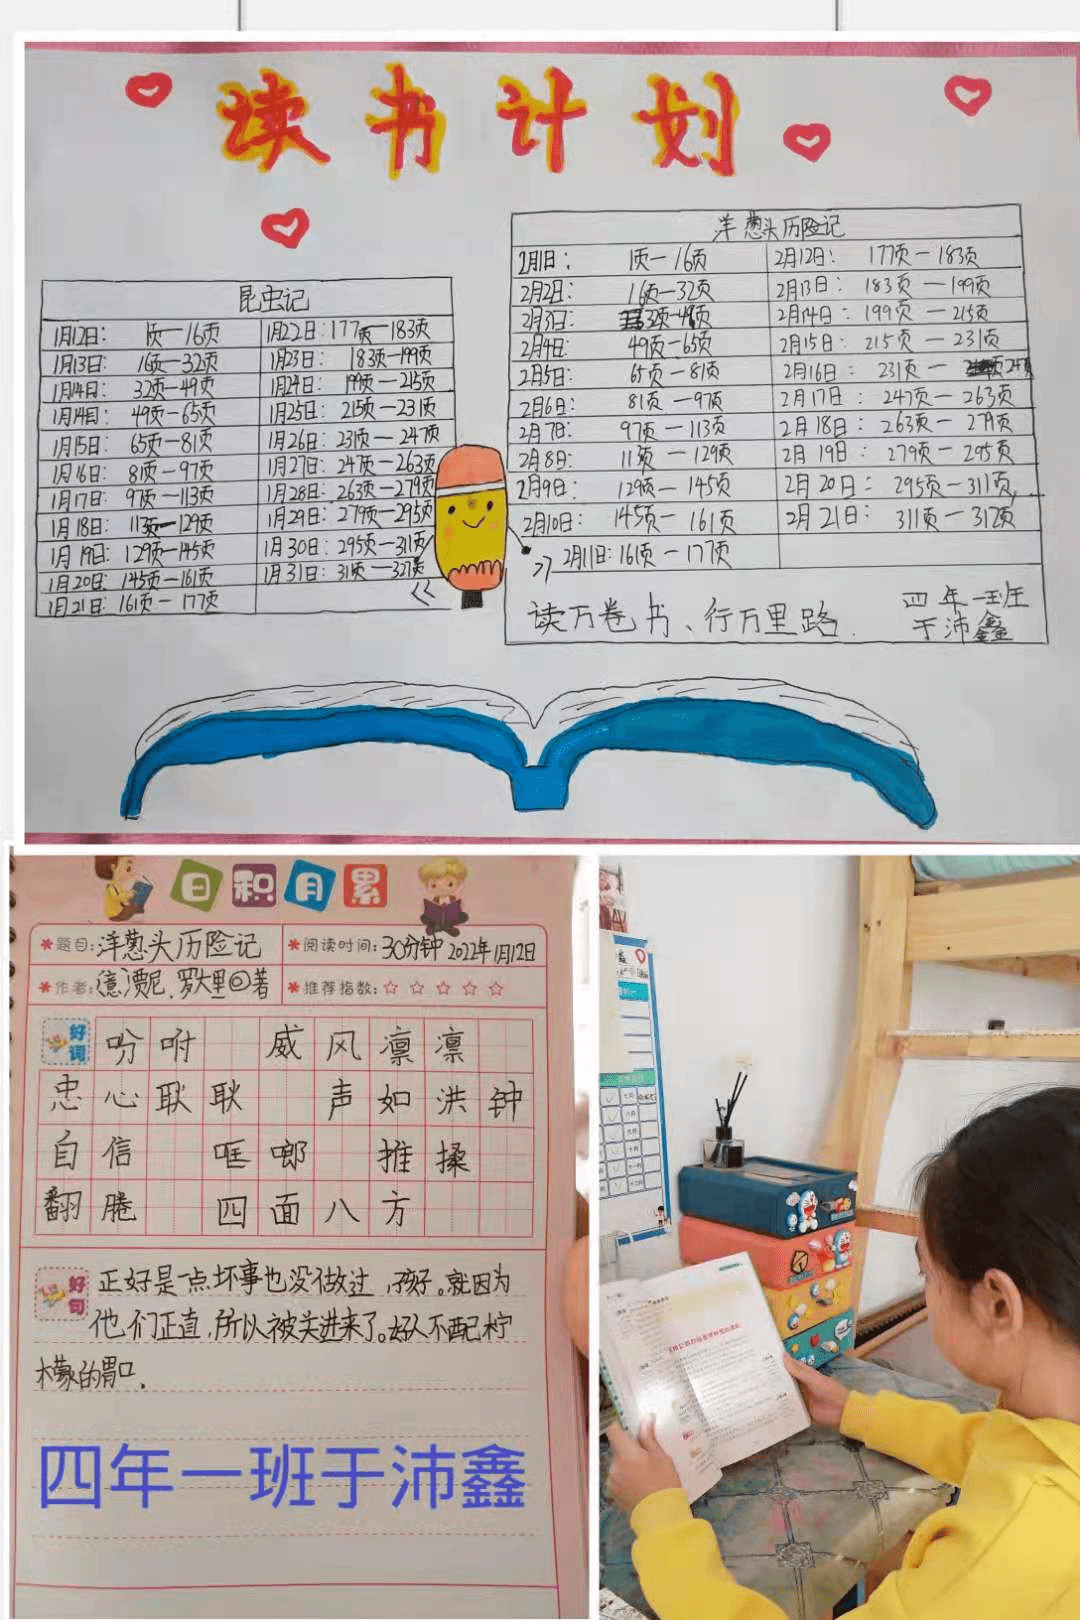 读书计划
昆虫记
1月12日: 1页—16页 1月22日:177页—183页
1月13日: 16页—32页 1月23日: 183页—199页
1月14日: 32页—49页 1月24日: 199页—215页
1月14日: 49页—65页 1月25日: 215页—231页
1月15日: 65页—81页 1月26日: 231页—247页
1月16日: 81页—97页 1月27日: 247页—263页
1月17日: 97页—113页 1月28日: 263页—279页
1月18日: 113页—129页 1月29日: 279页—295页
1月19日: 129页—145页 1月30日: 295页—311页
1月20日: 145页—161页 1月31日: 311页—327页
1月21日: 161页—177页
洋葱头历险记
2月1日: 1页—16页 2月12日: 177页—183页
2月2日: 16页—32页 2月13日: 183页—199页
2月3日: 32页—49页 2月14日: 199页—215页
2月4日: 49页—65页 2月15日: 215页—231页
2月5日: 65页—81页 2月16日: 231页—
2月6日: 81页—97页 2月17日: 247页—263页
2月7日: 97页—113页 2月18日: 263页—279页
2月8日: 113页—129页 2月19日: 279页—295页
2月9日: 129页—145页 2月20日: 295页—311页
2月10日: 145页—161页 2月21日: 311页—317页
2月11日:161页—177页
读万卷书、行万里路
四年一班
于沛鑫
日积月累
*题目:洋葱头历险记 *阅读时间:30分钟 2022年1月12日
*作者:(意)贾尼.罗大里◎著 *推荐指数:☆☆☆☆☆
好词 吩咐 威风凛凛
忠心耿耿 声如洪钟
自信 哐啷 推搡
翻腾 四面八方
好句 正好是一点坏事也没做过,孩好。就因为
他们正直,所以被关进来了。好人不配柠
檬的胃口.
四年一班于沛鑫